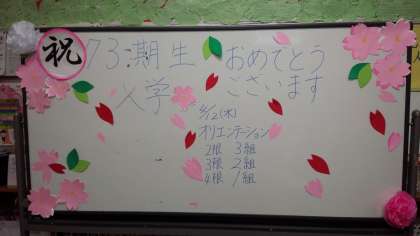 祝
73期生 おめでとう
入学 ございます
5/12(木)
オリエンテーション
2限 3組
3限 2組
4限 1組